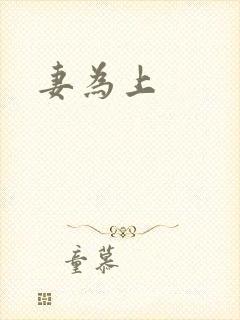 妻為上
童慕